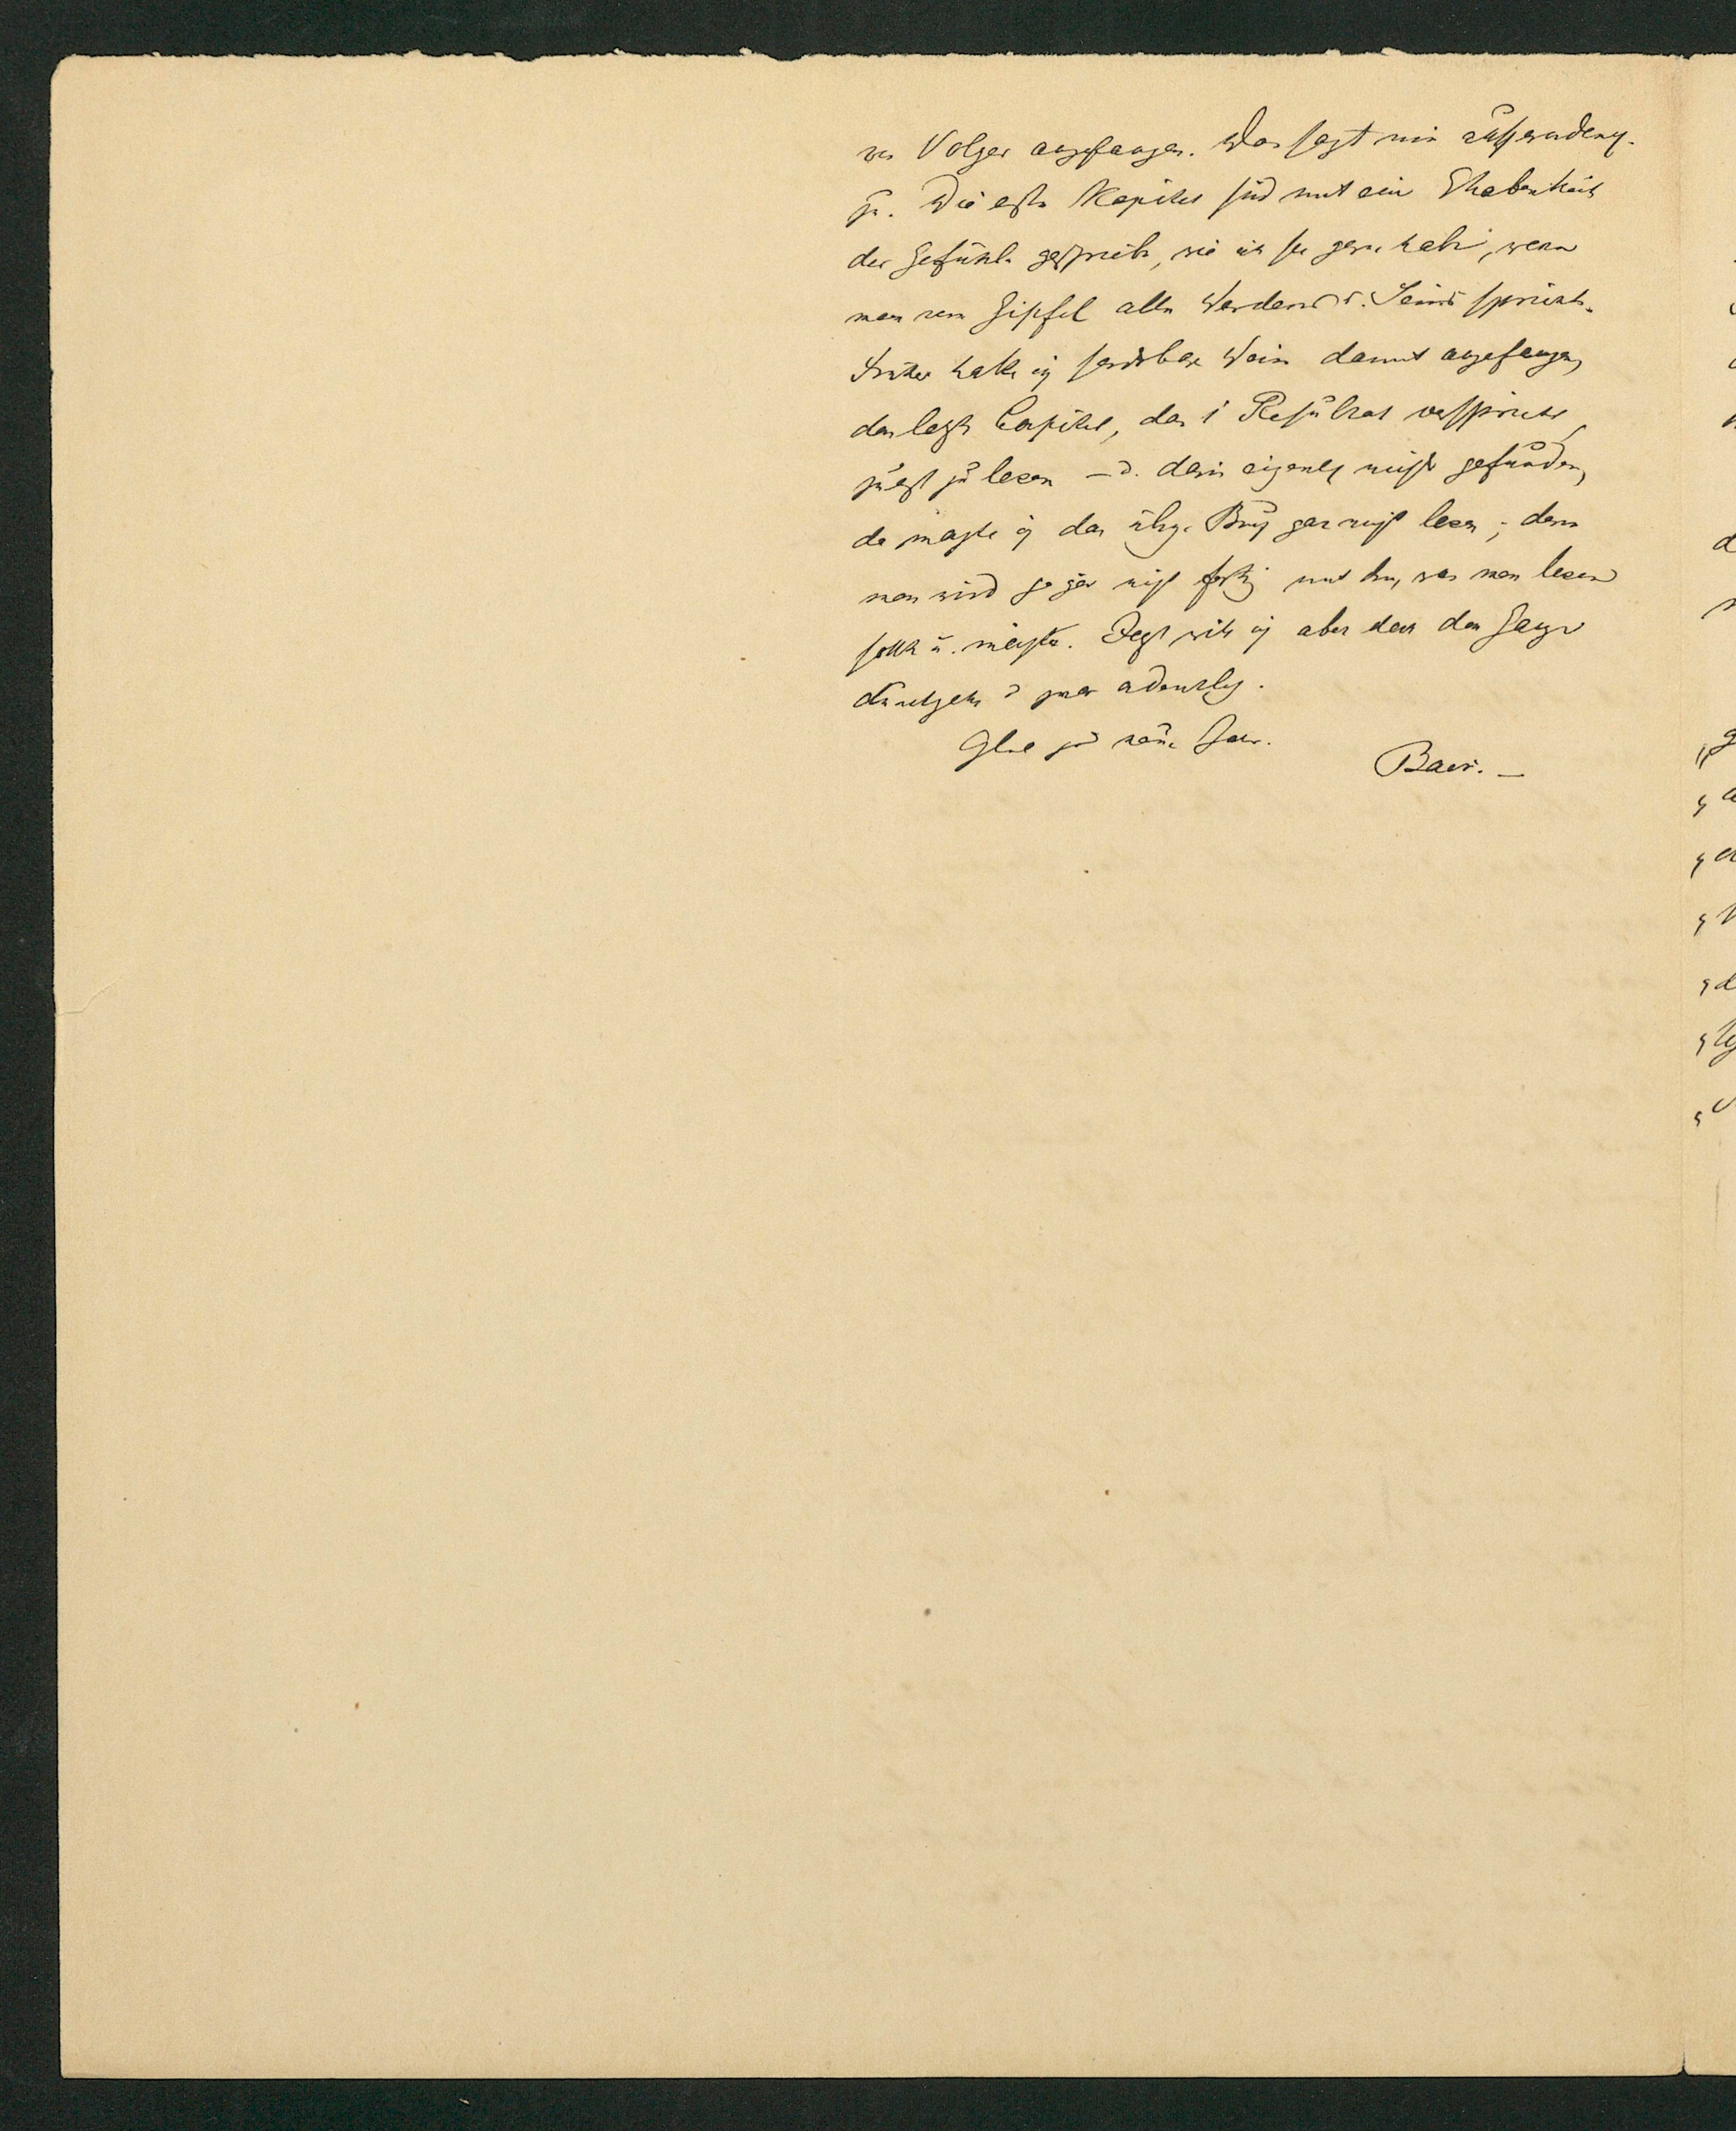 von Volger angefangen. Das sagt mir außerordentl.
zu. Die ersten Kapitel sind mit einer Erhabenheit
der Gefühle geschrieben, wie ich sie gern habe, wenn
man vom Gipfel allen Werdens u. Seins spricht.
Früher hatte ich sonderbarer Weise damit angefangen,
das letzte Capitel, das 1 Resultat verspricht,
zuerst zu lesen – u. darin eigentlich nichts gefunden,
da mochte ich das übrige Buch gar nicht lesen; denn
man wird ja gar nicht fertig mit dem, was man lesen
sollte u. möchte. Jetzt will ich aber das Ganze
durchgehn u zwar ordentlich.
Glück zum neuen Jahr.
Baer. –